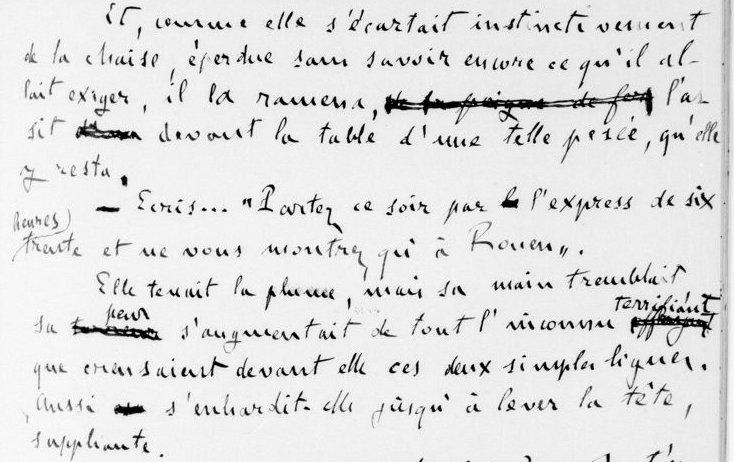 Et, comme elle s'écartait instinctivement
de la chaise, éperdue sans savoir encore ce qu'il al-
lait exiger, il la ramena, l'as
sit devant la table d'une telle pesée, qu'elle
y resta.
— Ecris... "Partez ce soir par l'express de six
heures
trente et ne vous montrez qu'à Rouen".
Elle tenait la plume, mais sa main tremblait
sa peur s'augmentait de tout l'inconnu terrifiant
que creusaient devant elle ces deux simples lignes.
Aussi s'enhardit-elle jusqu'à lever la tête,
suppliante.